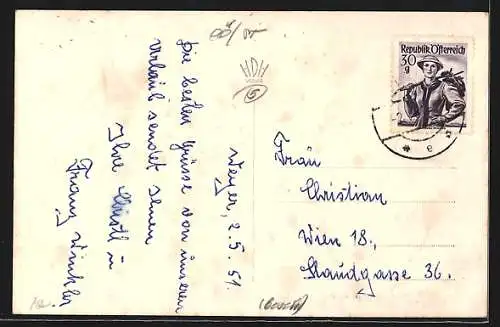 Weyer, 2.5.51.
Die besten Grüsse von unserem
Urlaub sendet Ihnen
Ihre Christl u
Franz Winkler
HDH
5
Republik Österreich
30
g
Frau
Christian
Wien 18.,
Staudgasse 36.